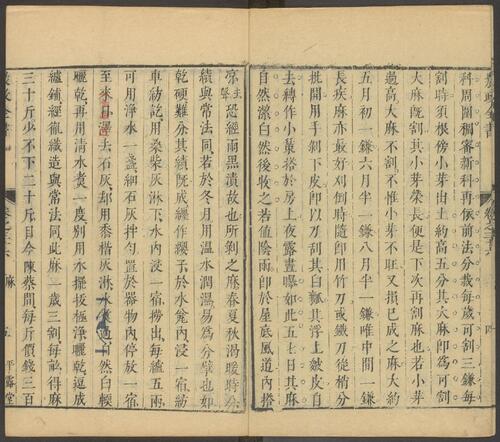 科周圍稠密新科再依前法分栽每歲可割三鎌每
割時須根傍小芽出土約高五分其大麻卽爲可割
大麻旣割其小芽榮長便是下次再割麻也若小芽
過高大麻不割不惟小芽不旺又損已成之麻大約
五月初一鎌六月半一鎌八月半一鎌唯中間一鎌
長疾麻亦最好刈倒時隨卽用竹刀或鐵刀從梢分
批開用手剝下皮卽以刀刮其白瓤其浮上皴皮自
去縛作小葉搭於房上夜露晝曝如此五七日其麻
自然潔白然後收之若値陰雨卽於屋底風道內搭
凉
恐經雨黑漬故也所剝之麻春夏秋溫暖時分
績與常法同若於冬月用溫水潤濕易爲分擘也如
乾硬難分其績旣成纏作纓子於水瓮內浸一宿紡
車紡訖用桑柴灰淋下水內浸一宿撈出每纑五兩
可用淨水一盞細石灰拌勻置於器物內停放一宿
至來日澤去石灰却用黍稭灰淋水煮過自然白輭
曬乾再用清水煮一度別用水擺拔極淨曬乾逗成
纑鋪經緯織造與常法同此麻一歲三割每畝得麻
三十斤少不下二十斤目今陳蔡間每斤價錢三百
農政全書
卷之三十六 麻 五 平露堂